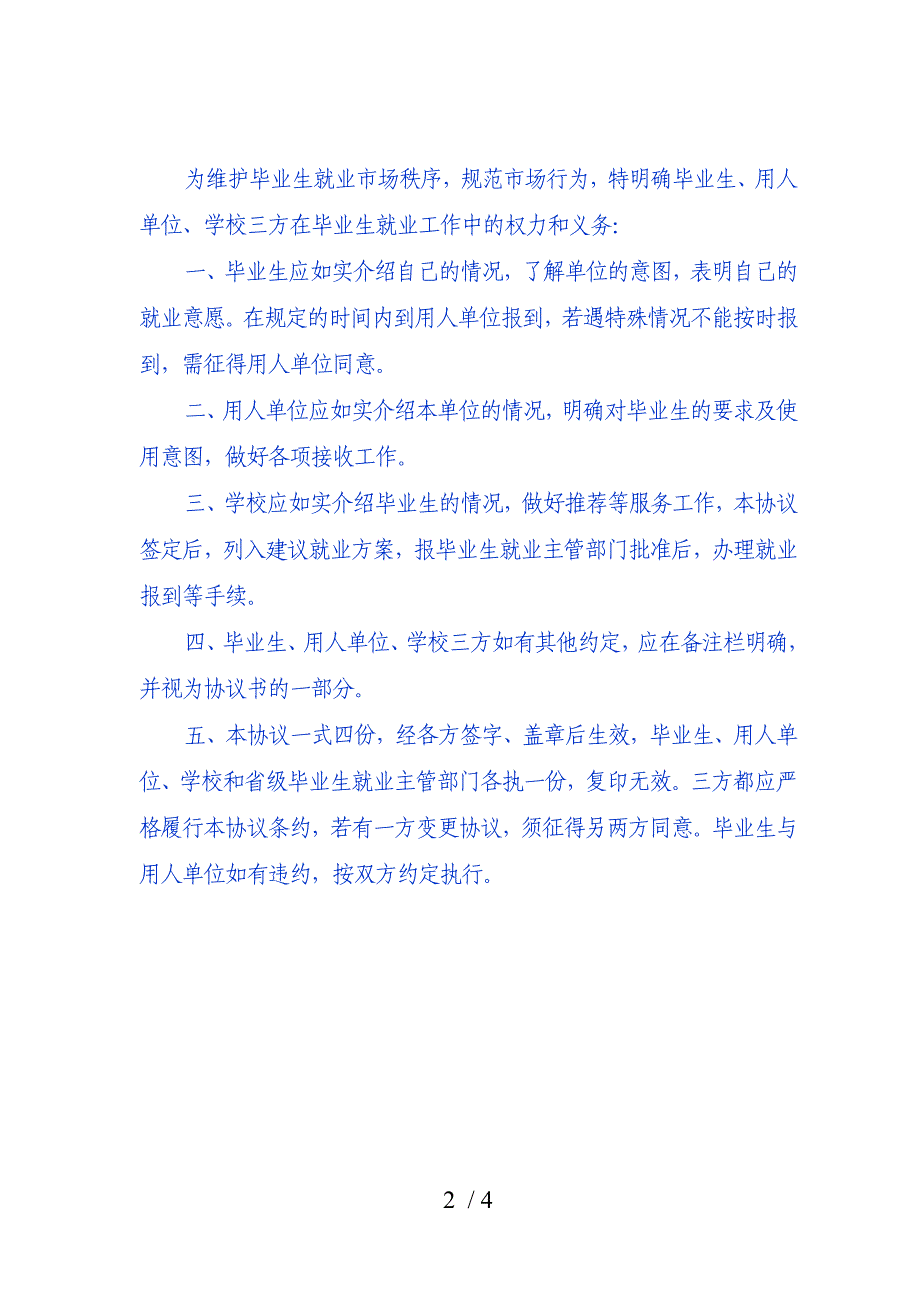 为维护毕业生就业市场秩序，规范市场行为，特明确毕业生、用人
单位、学校三方在毕业生就业工作中的权力和义务：
一、毕业生应如实介绍自己的情况，了解单位的意图，表明自己的
就业意愿。在规定的时间内到用人单位报到，若遇特殊情况不能按时报
到，需征得用人单位同意。
二、用人单位应如实介绍本单位的情况，明确对毕业生的要求及使
用意图，做好各项接收工作。
三、学校应如实介绍毕业生的情况，做好推荐等服务工作，本协议
签定后，列入建议就业方案，报毕业生就业主管部门批准后，办理就业
报到等手续。
四、毕业生、用人单位、学校三方如有其他约定，应在备注栏明确，
并视为协议书的一部分。
五、本协议一式四份，经各方签字、盖章后生效，毕业生、用人单
位、学校和省级毕业生就业主管部门各执一份，复印无效。三方都应严
格履行本协议条约，若有一方变更协议，须征得另两方同意。毕业生与
用人单位如有违约，按双方约定执行。
2 / 4